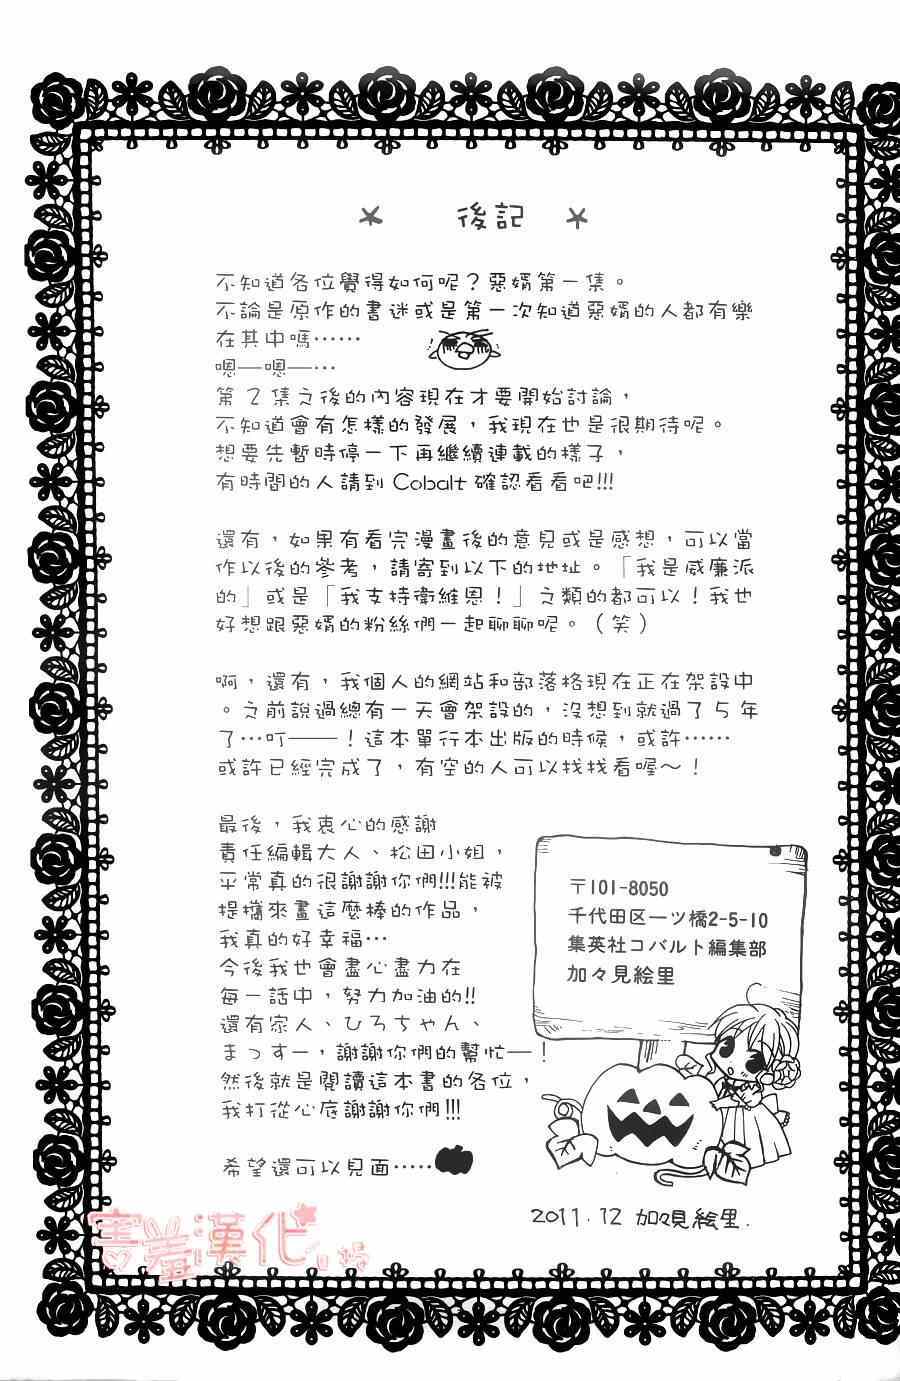 後記
不知道各位覺得如何呢？惡婿第一集。
不論是原作的書迷或是第一次知道惡婿的人都有樂
在其中嗎……
嗯—嗯—…
第2集之後的內容現在才要開始討論，
不知道會有怎樣的發展，我現在也是很期待呢。
想要先暫時停一下再繼續連載的樣子，
有時間的人請到 Cobalt 確認看看吧!!!
還有，如果有看完漫畫後的意見或是感想，可以當
作以後的參考，請寄到以下的地址。「我是威廉派
的」或是「我支持衛維恩！」之類的都可以！我也
好想跟惡婿的粉絲們一起聊聊呢。（笑）
啊，還有，我個人的網站和部落格現在正在架設中
。之前說過總有一天會架設的，沒想到就過了5年
了…叮——！這本單行本出版的時候，或許……
或許已經完成了，有空的人可以找找看喔～！
最後，我衷心的感謝
責任編輯大人、松田小姐，
平常真的很謝謝你們!!!能被
提攜來畫這麼棒的作品，
我真的好幸福…
今後我也會盡心盡力在
每一話中，努力加油的!!
還有家人、ひろちゃん、
まっすー，謝謝你們的幫忙—！
然後就是閱讀這本書的各位，
我打從心底謝謝你們!!!
希望還可以見面……
〒101-8050
千代田区一ツ橋2-5-10
集英社コバルト編集部
加々見絵里
2011.12 加々見絵里.
害羞漢化